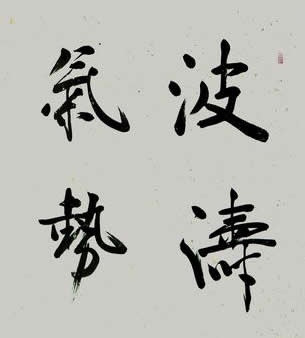 波濤
氣勢